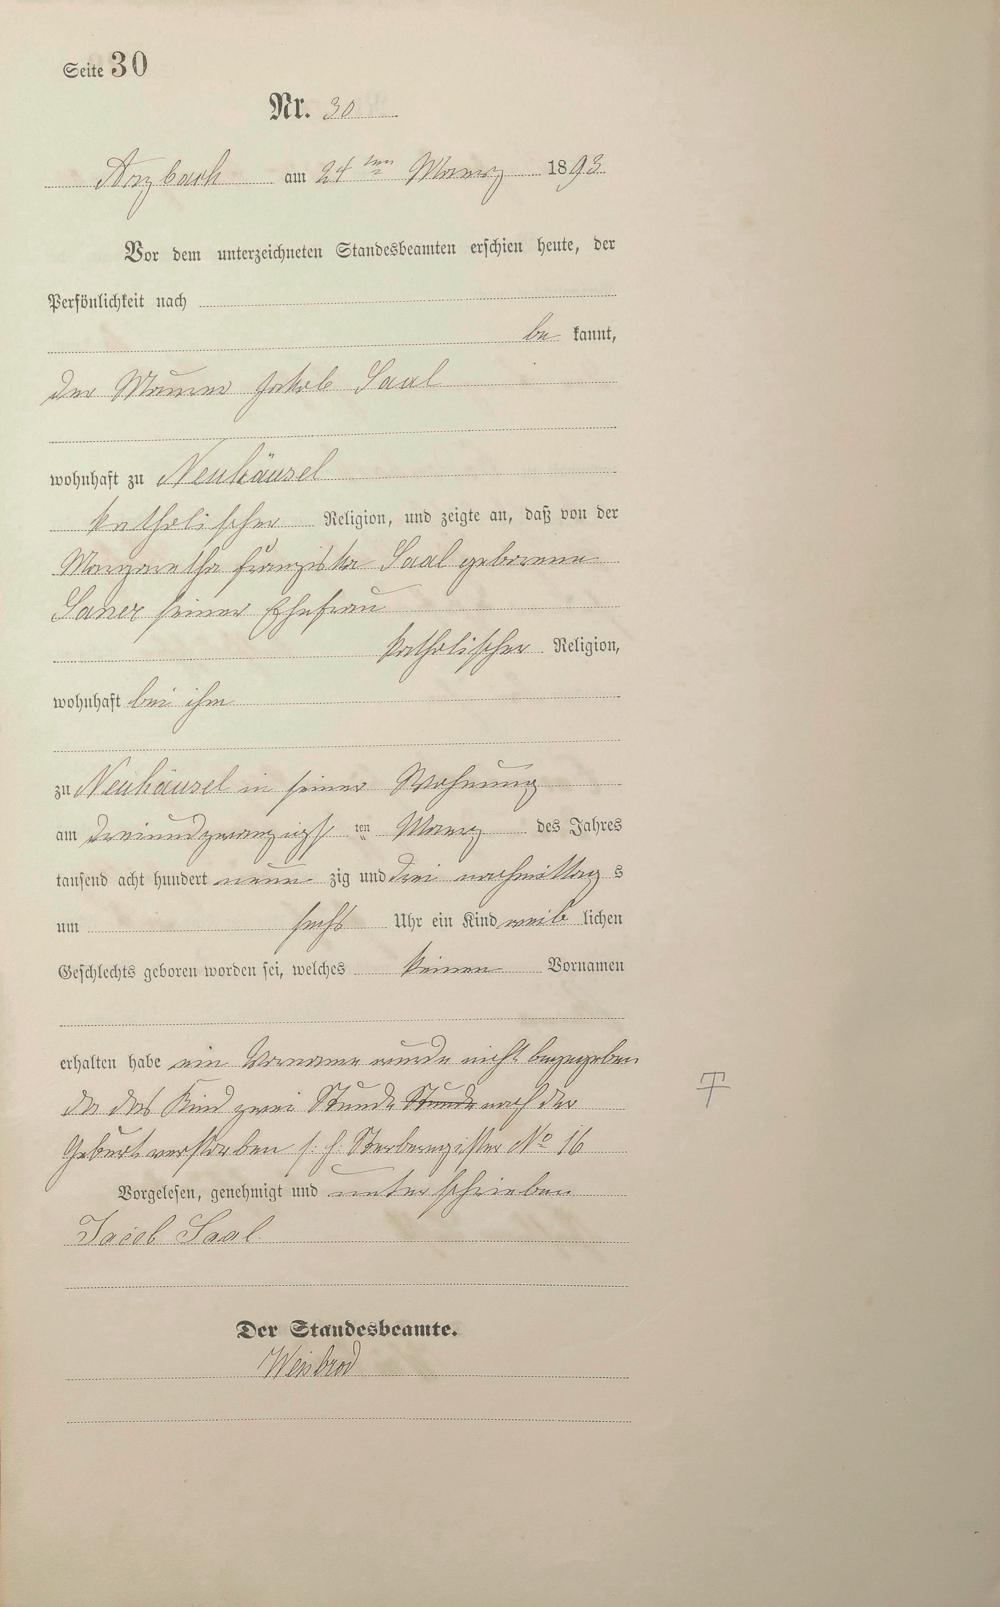 Seite 30
Nr. 30
Arzbach am 24 ten Maerz 1893
Vor dem unterzeichneten Standesbeamten erschien heute, der
Persönlichkeit nach
be kannt,
der Maurer Jakob Saal
wohnhaft zu Neuhäusel
katholischer Religion, und zeigte an, daß von der
Margaretha Franziska Saal geborene
Saner seiner Ehefrau
katholischer Religion,
wohnhaft bei ihm
zu Neuhäusel in seiner Wohnung
am dreiundzwanzigst ten Maerz des Jahres
tausend acht hundert neun zig und drei nachmittag s
um sechs Uhr ein Kind weib lichen
Geschlechts geboren worden sei, welches keinen Vornamen
erhalten habe ein Vorname wurde nicht beygegeben
da das Kind zwei Stunde Stunde nach der
Geburt verstorben s. h. Sterberegister No 16
Vorgelesen, genehmigt und unterschrieben
Jacob Saal
Der Standesbeamte.
Weisbrod